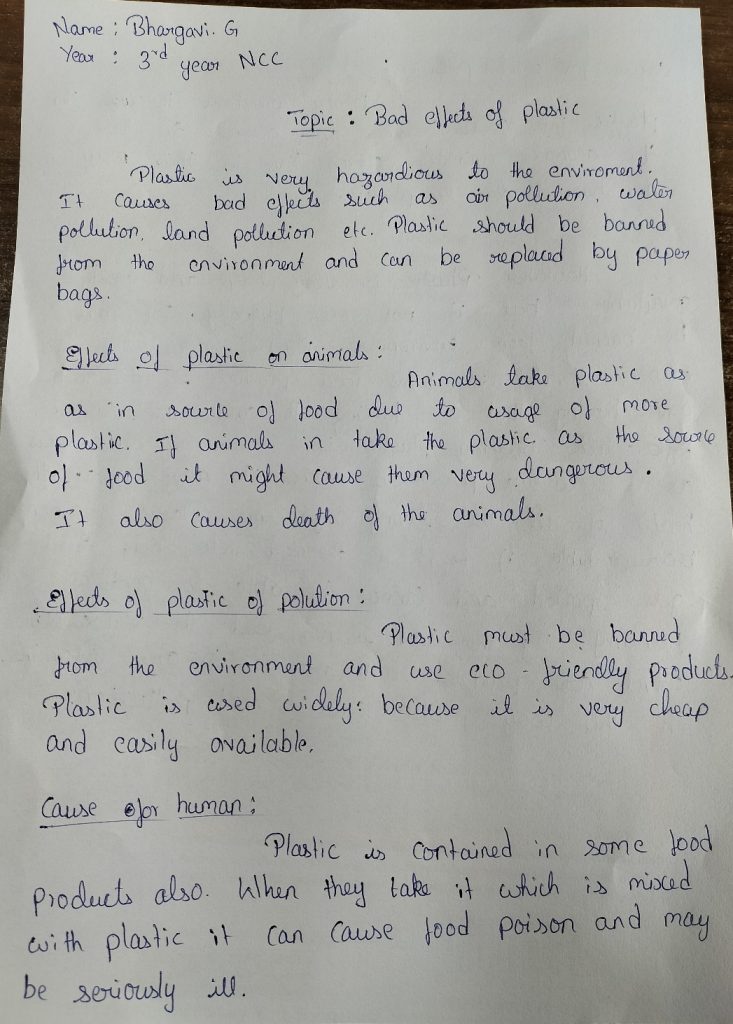 Name : Bhargavi. G
Year : 3rd year NCC
Topic : Bad effects of plastic
Plastic is very hazardious to the enviroment.
It causes bad effects such as air pollution, water
pollution, land pollution etc. Plastic should be banned
from the environment and can be replaced by paper
bags.
Effects of plastic on animals :
Animals take plastic as
as in source of food due to usage of more
plastic. If animals in take the plastic as the source
of food it might cause them very dangerous.
It also causes death of the animals.
Effects of plastic of polution :
Plastic must be banned
from the environment and use eco - friendly products.
Plastic is used widely: because it is very cheap
and easily available.
Cause for human :
Plastic is contained in some food
products also. When they take it which is mixed
with plastic it can cause food poison and may
be seriously ill.